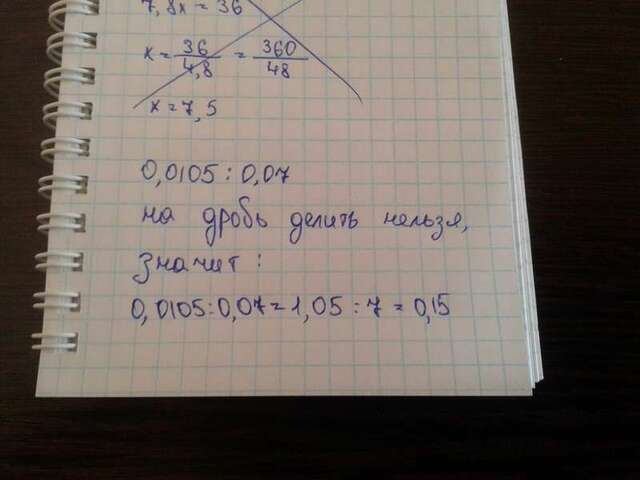 7,8x = 36
x = 36/4,8 = 360/48
x = 7,5
0,0105 : 0,07
на дробь делить нельзя,
значит :
0,0105:0,07=1,05 : 7 = 0,15